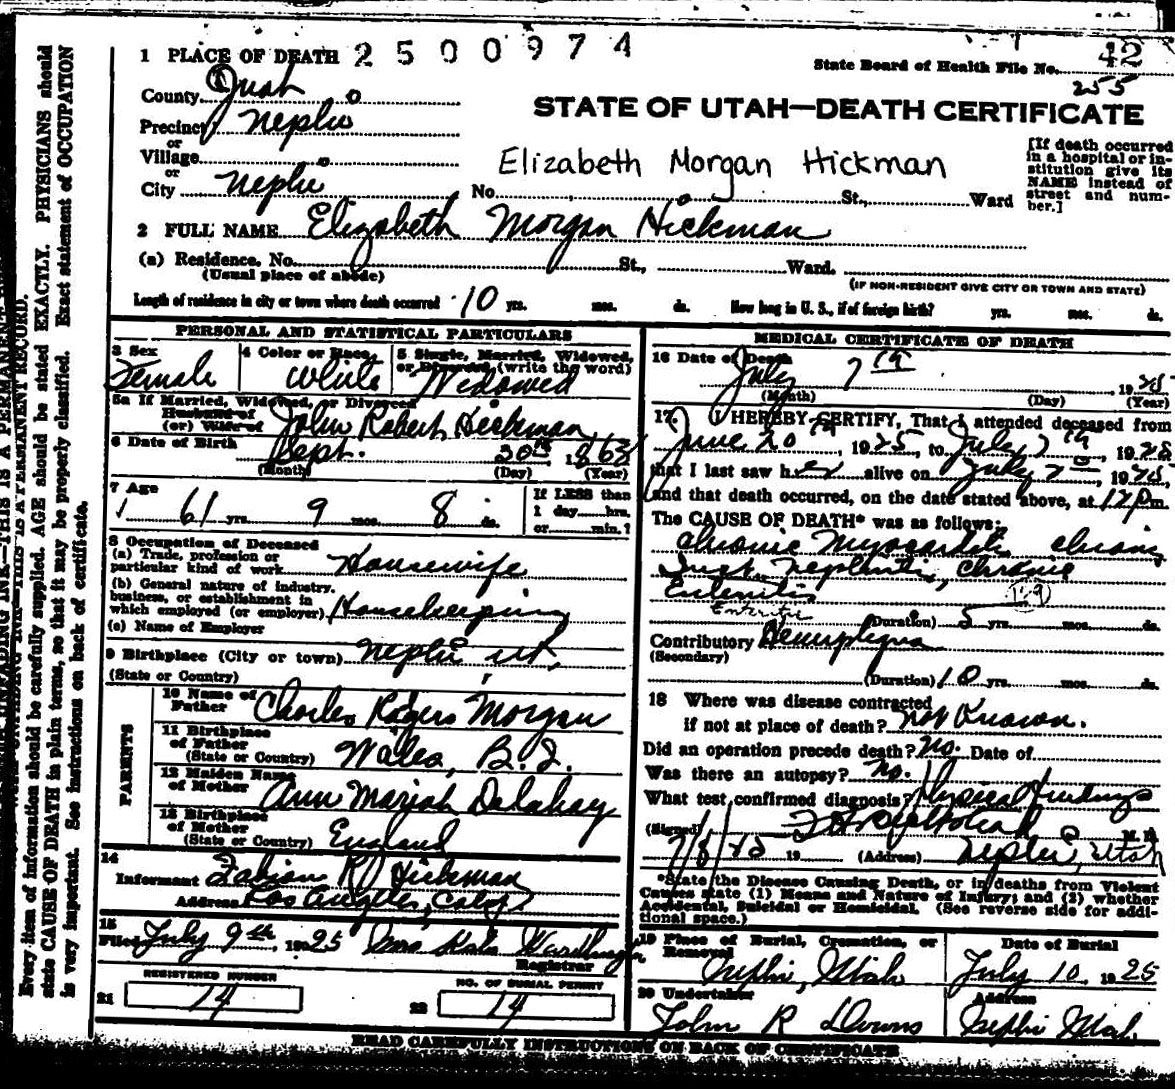 1 PLACE OF DEATH 2500974
State Board of Health File No. 42
255
County Juab
STATE OF UTAH—DEATH CERTIFICATE
Precinct Nephi
or
Village
or
City Nephi No. St., Ward
Elizabeth Morgan Hickman
[If death occurred
in a hospital or in-
stitution give its
NAME instead of
street and num-
ber.]
2 FULL NAME Elizabeth Morgan Hickman
(a) Residence. No. St., Ward.
(Usual place of abode) (IF NON-RESIDENT GIVE CITY OR TOWN AND STATE)
Length of residence in city or town where death occurred 10 yrs. mos. ds. How long in U. S., if of foreign birth? yrs. mos. ds.
PERSONAL AND STATISTICAL PARTICULARS
3 Sex Female
4 Color or Race White
5 Single, Married, Widowed, or Divorced (write the word)
Widowed
5a If Married, Widowed, or Divorced
Husband of
(or) Wife of John Robert Hickman
6 Date of Birth Sept. 30th, 1863
(Month) (Day) (Year)
7 Age
61 yrs. 9 mos. 8 ds.
If LESS than
1 day hrs.
or min.?
8 Occupation of Deceased
(a) Trade, profession or
particular kind of work Housewife
(b) General nature of industry,
business, or establishment in
which employed (or employer) Housekeeping
(c) Name of Employer
9 Birthplace (City or town) Nephi Ut.
(State or Country)
PARENTS
10 Name of
Father Charles Rogers Morgan
11 Birthplace
of Father
(State or Country) Wales, B.I.
12 Maiden Name
of Mother Ann Mariah Delahay
13 Birthplace
of Mother
(State or Country) England
14
Informant Fabian R. Hickman
Address Los Angeles, Calif
15
Filed July 9th, 1925 Mrs
Registrar
REGISTERED NUMBER
21 14
NO. OF BURIAL PERMIT
22 14
MEDICAL CERTIFICATE OF DEATH
16 Date of Death
July 7th 1925
(Month) (Day) (Year)
17 I HEREBY CERTIFY, That I attended deceased from
June 20th, 1925, to July 7th, 1925
that I last saw her alive on July 7th, 1925,
and that death occurred, on the date stated above, at 12 p.m.
The CAUSE OF DEATH* was as follows:
Chronic Myocarditis chronic
Inst. Nephritis, Chronic
Enteritis
Enteritis 129
(Duration) 5 yrs. mos. ds.
Contributory Hemiplegia
(Secondary)
(Duration) 10 yrs. mos. ds.
18 Where was disease contracted
if not at place of death? Not Known.
Did an operation precede death? No. Date of
Was there an autopsy? No.
What test confirmed diagnosis? Physical findings
(Signed) M.D.
7/8/25 19 (Address) Nephi, Utah
*State the Disease Causing Death, or in deaths from Violent
Causes state (1) Means and Nature of Injury; and (2) whether
Accidental, Suicidal or Homicidal. (See reverse side for addi-
tional space.)
19 Place of Burial, Cremation, or
Removal
Nephi, Utah
Date of Burial
July 10, 1925
20 Undertaker
John R Downs
Address
Nephi Utah
READ CAREFULLY INSTRUCTIONS ON BACK OF CERTIFICATE
Every item of information should be carefully supplied. AGE should be stated EXACTLY. PHYSICIANS should
state CAUSE OF DEATH in plain terms, so that it may be properly classified. Exact statement of OCCUPATION
is very important. See instructions on back of certificate.